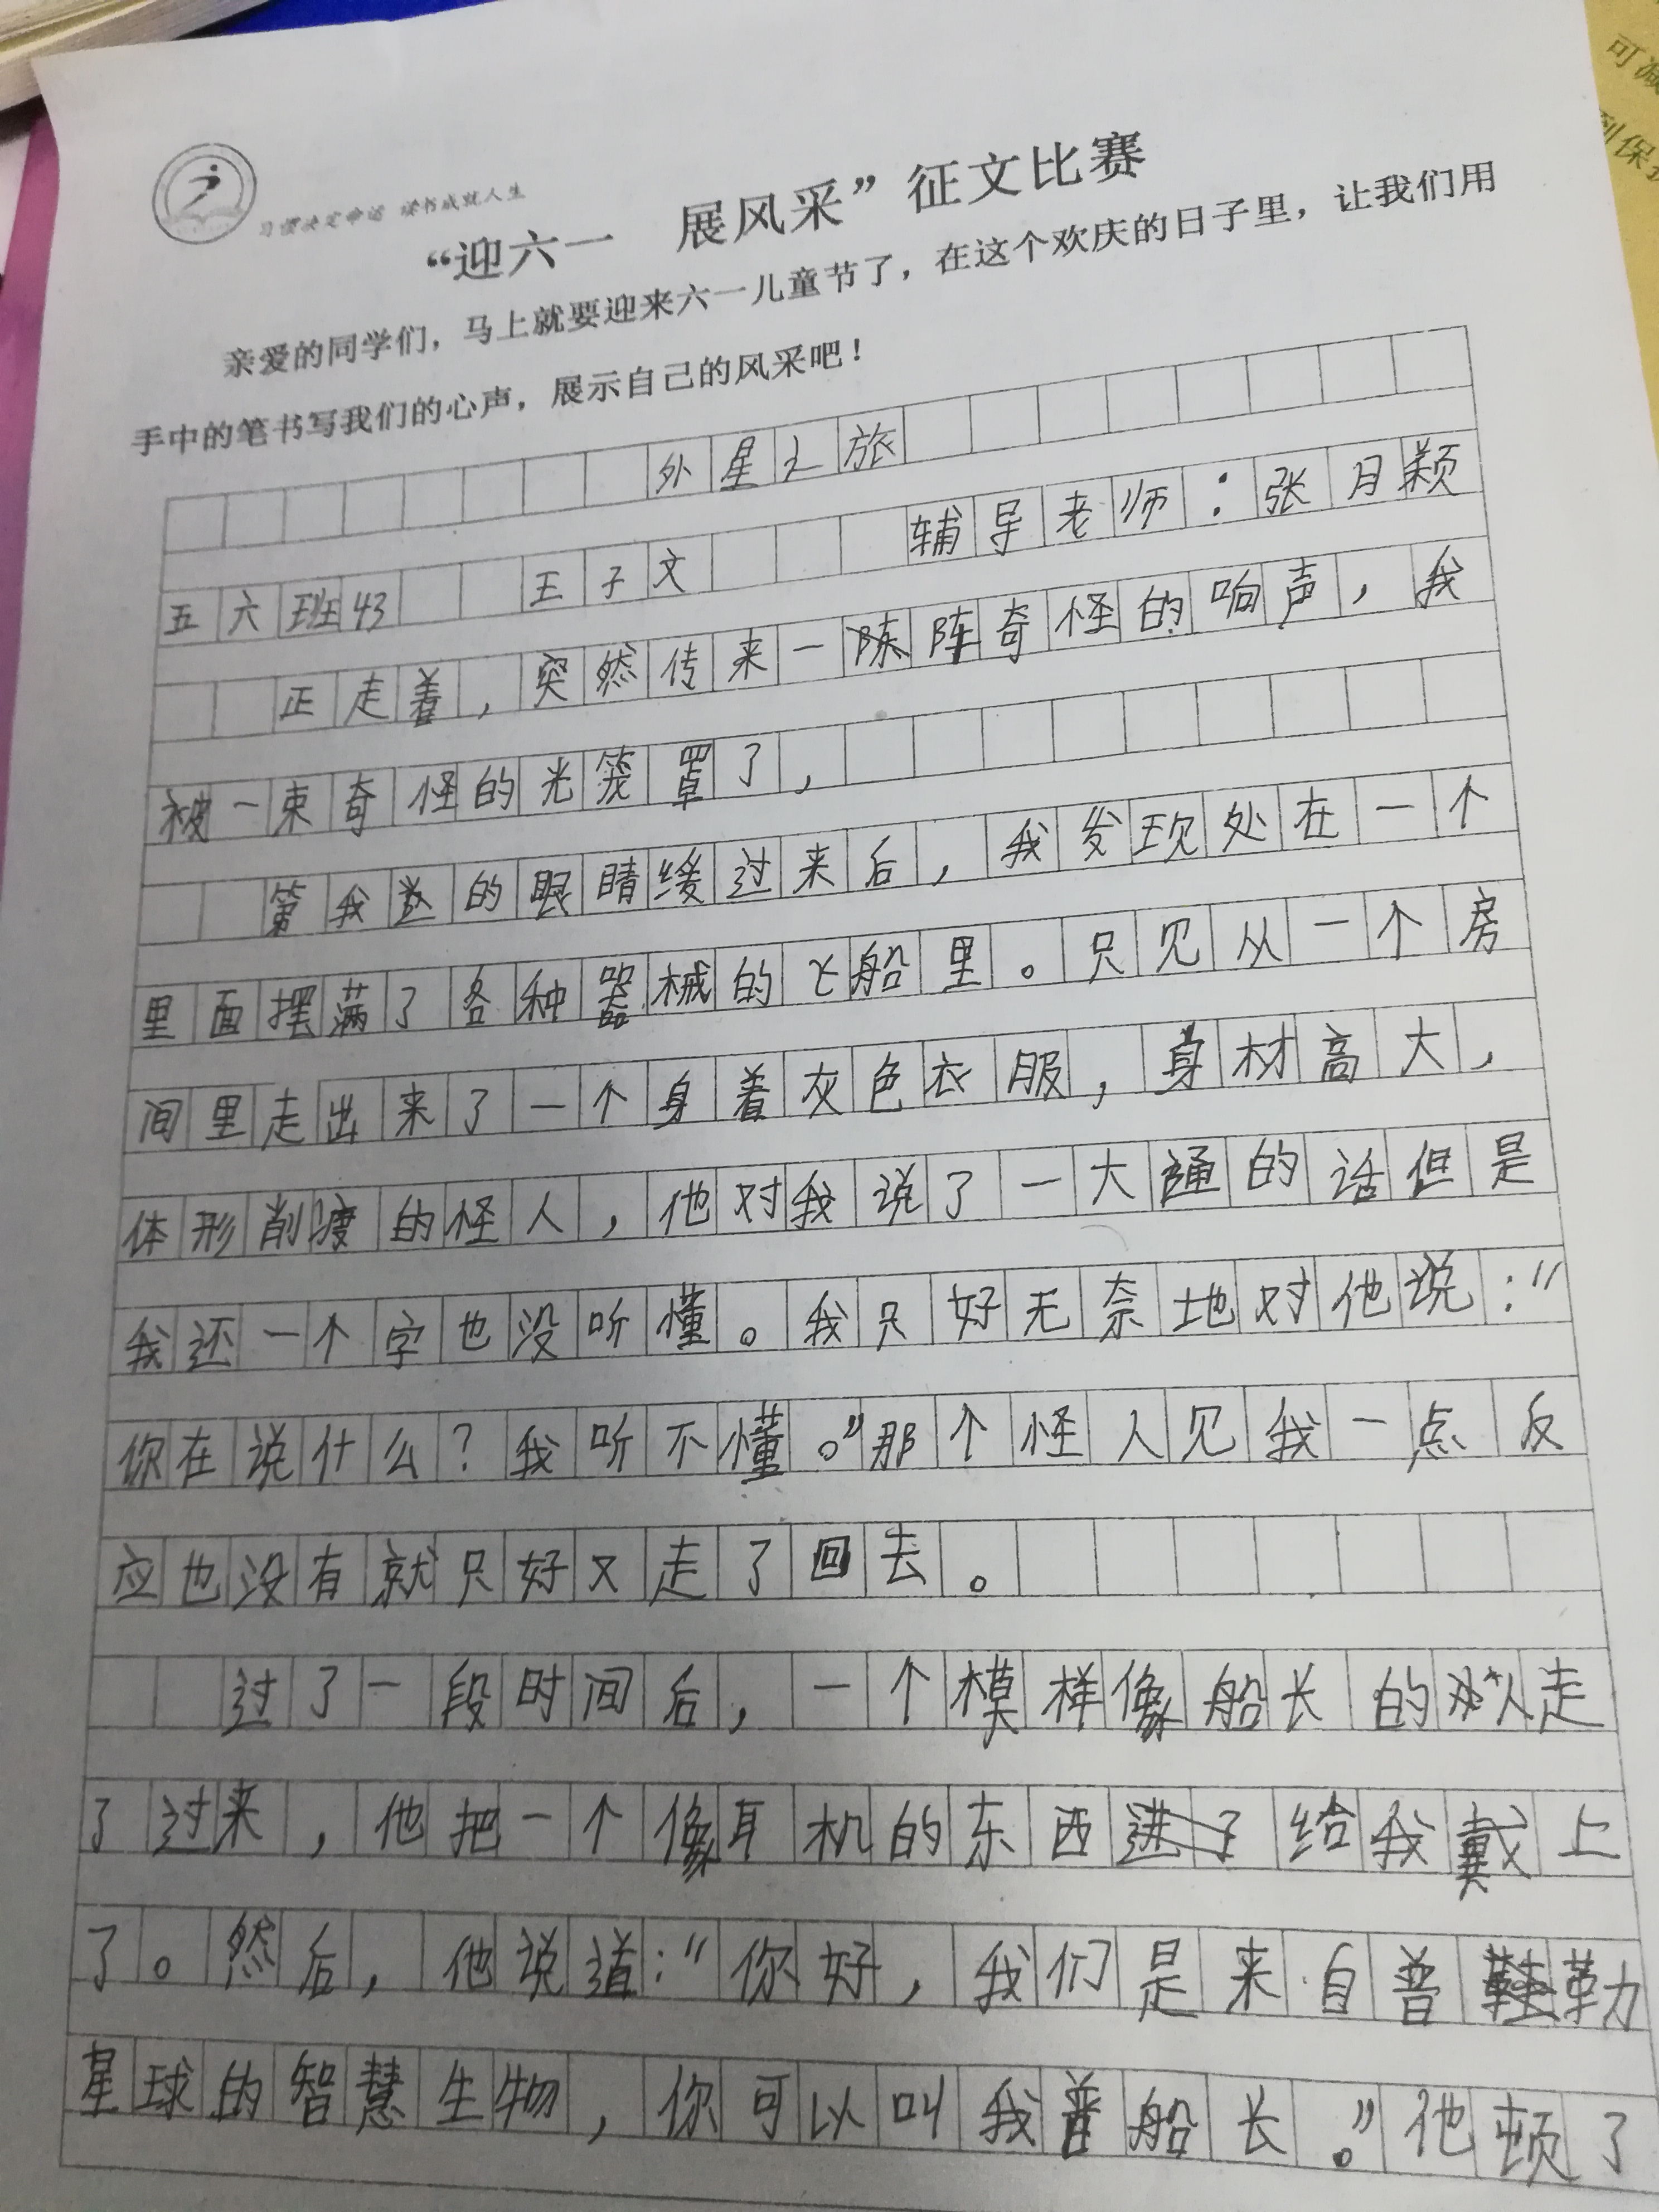 习惯决定命运 读书成就人生
“迎六一 展风采”征文比赛
亲爱的同学们，马上就要迎来六一儿童节了，在这个欢庆的日子里，让我们用
手中的笔书写我们的心声，展示自己的风采吧！
外星之旅
五六班43 王子文 辅导老师：张月颖
正走着，突然传来一阵奇怪的响声，我
被一束奇怪的光笼罩了，
第我的眼睛缓过来后，我发现处在一个
里面摆满了各种器械的飞船里。只见从一个房
间里走出来了一个身着灰色衣服，身材高大，
体形削瘦的怪人，他对我说了一大通的话但是
我还一个字也没听懂。我只好无奈地对他说：“
你在说什么？我听不懂。”那个怪人见我一点反
应也没有就只好又走了回去。
过了一段时间后，一个模样像船长的人走
了过来，他把一个像耳机的东西给我戴上
了。然后，他说道：“你好，我们是来自普勒
星球的智慧生物，你可以叫我普船长。”他顿了
可减
到保